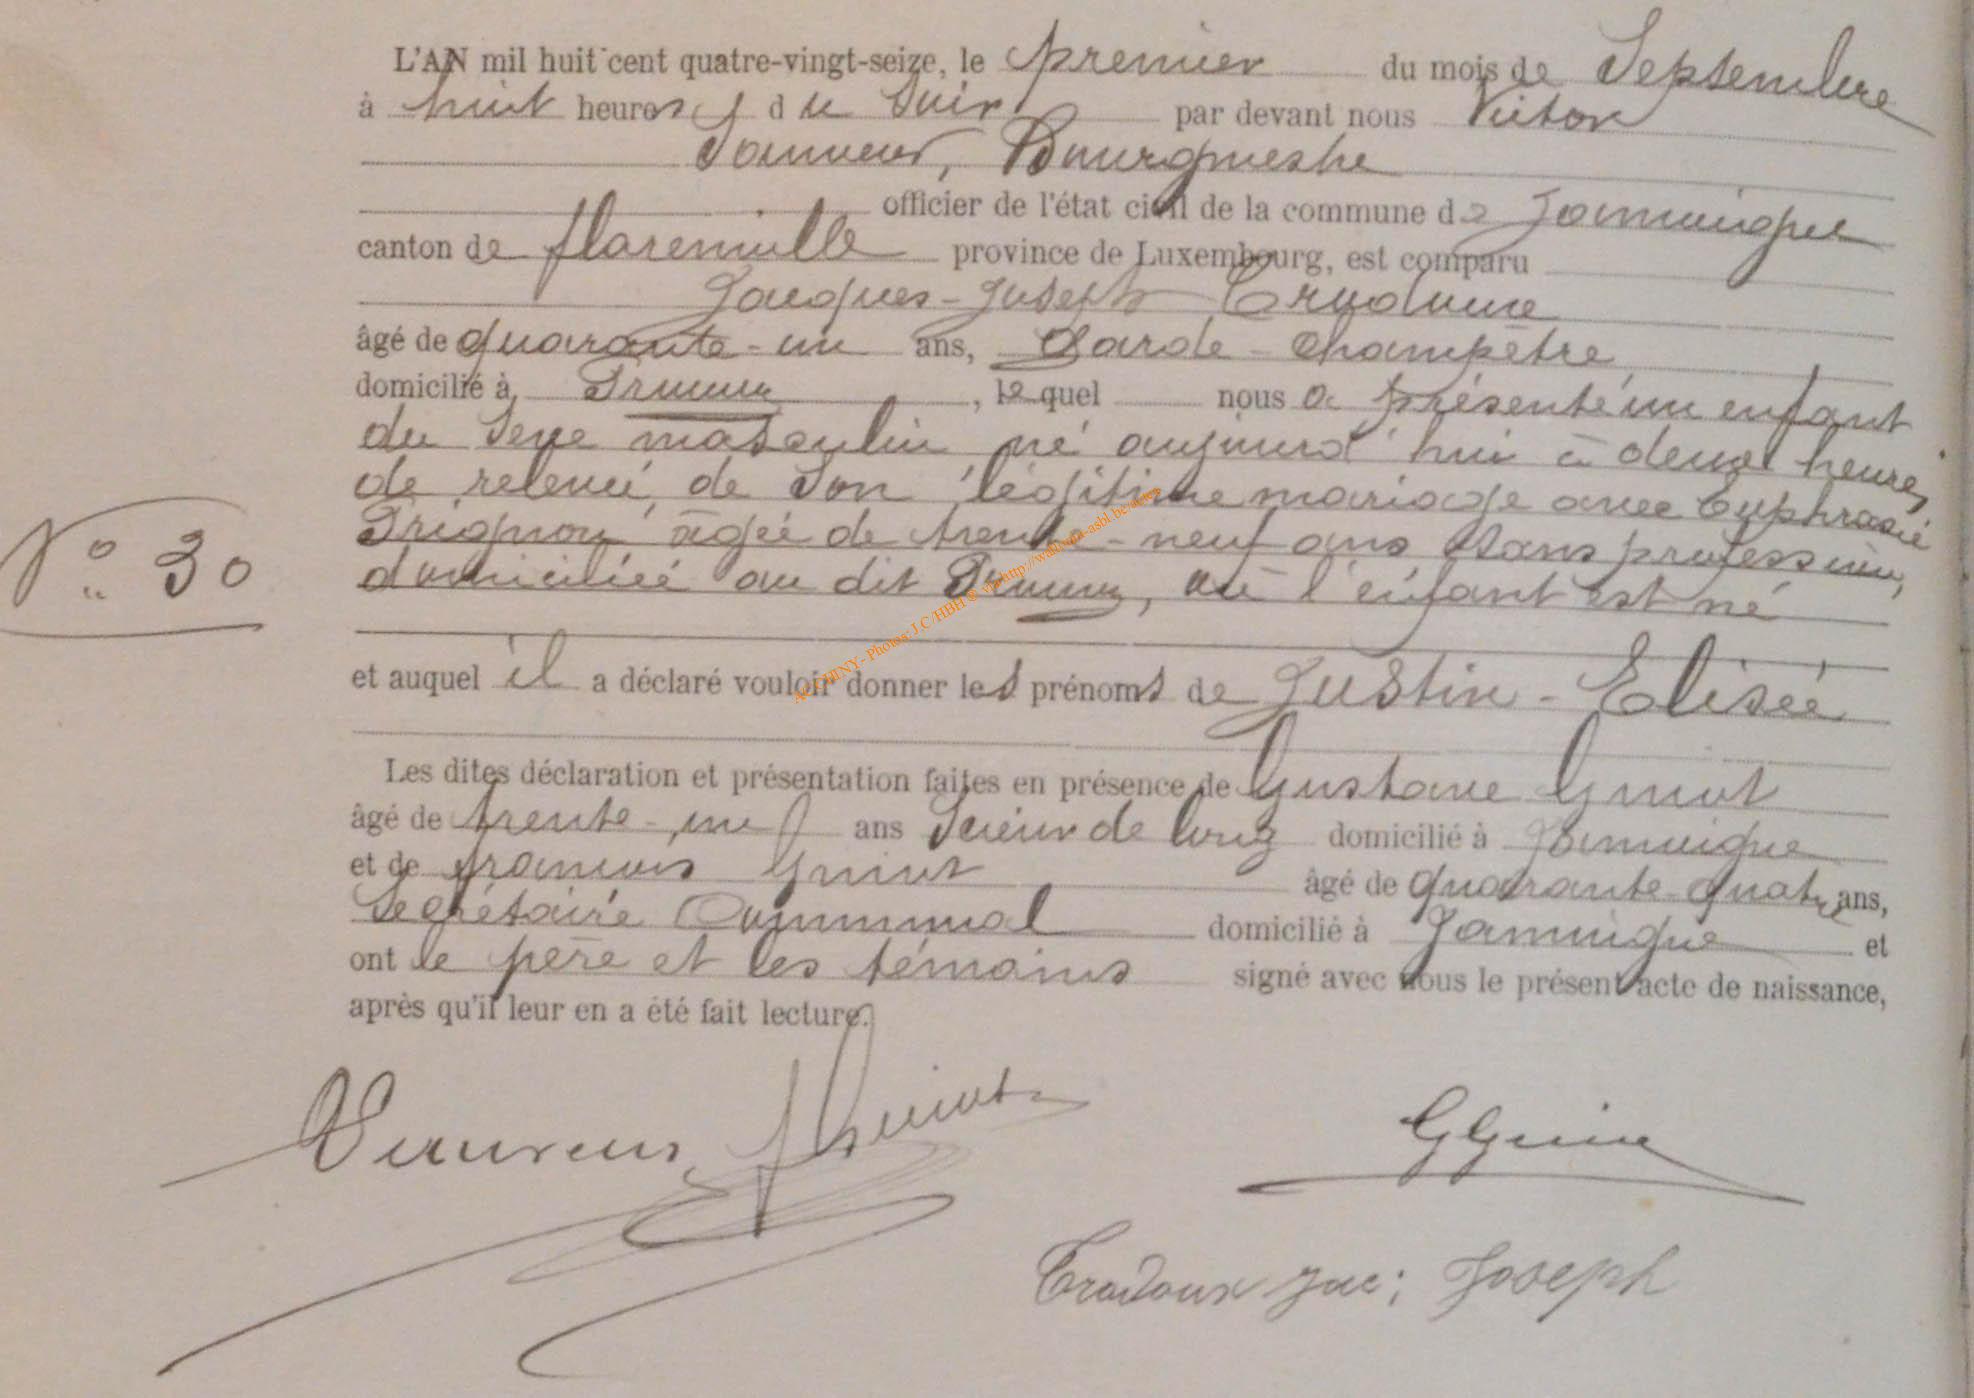 L'AN mil huit cent quatre-vingt-seize, le premier du mois de Septembre
à huit heures du Soir par devant nous Victor
Sauveur, Bourgmestre
officier de l'état civil de la commune de Jamoigne
canton de florenville province de Luxembourg, est comparu
Jacques-Joseph
âgé de quarante-un ans, Garde-Champêtre
domicilié à Prouvy, lequel nous a présenté un enfant
du Sexe masculin, né aujourd'hui à deux heures
de relevée, de Son légitime mariage avec Euphrasie
Prignon, âgée de trente-neuf ans Sans profession,
domiciliée au dit Prouvy, où l'enfant est né
N° 30
et auquel il a déclaré vouloir donner les prénoms de Justin-Elisée
Les dites déclaration et présentation faites en présence de Gustave Guiot
âgé de trente-un ans Scieur de long domicilié à Jamoigne
et de françois Guiot âgé de quarante-quatre ans,
Secrétaire Communal domicilié à Jamoigne et
ont le père et les témoins signé avec nous le présent acte de naissance,
après qu'il leur en a été fait lecture.
Sauveur fGuiot
GGuiot
Jac: Joseph